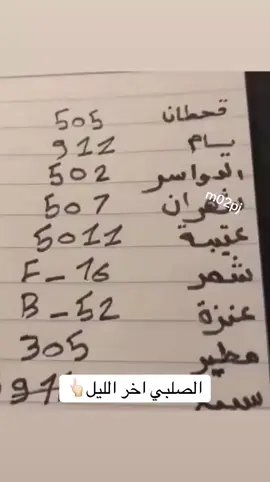 قحطان 505
يام 911
الدواسر 502
شمران 507
عتيبة 5011
شمر F_16
عنزة B_52
مطير 305
m02pj
الصلبي اخر الليل👆🏻